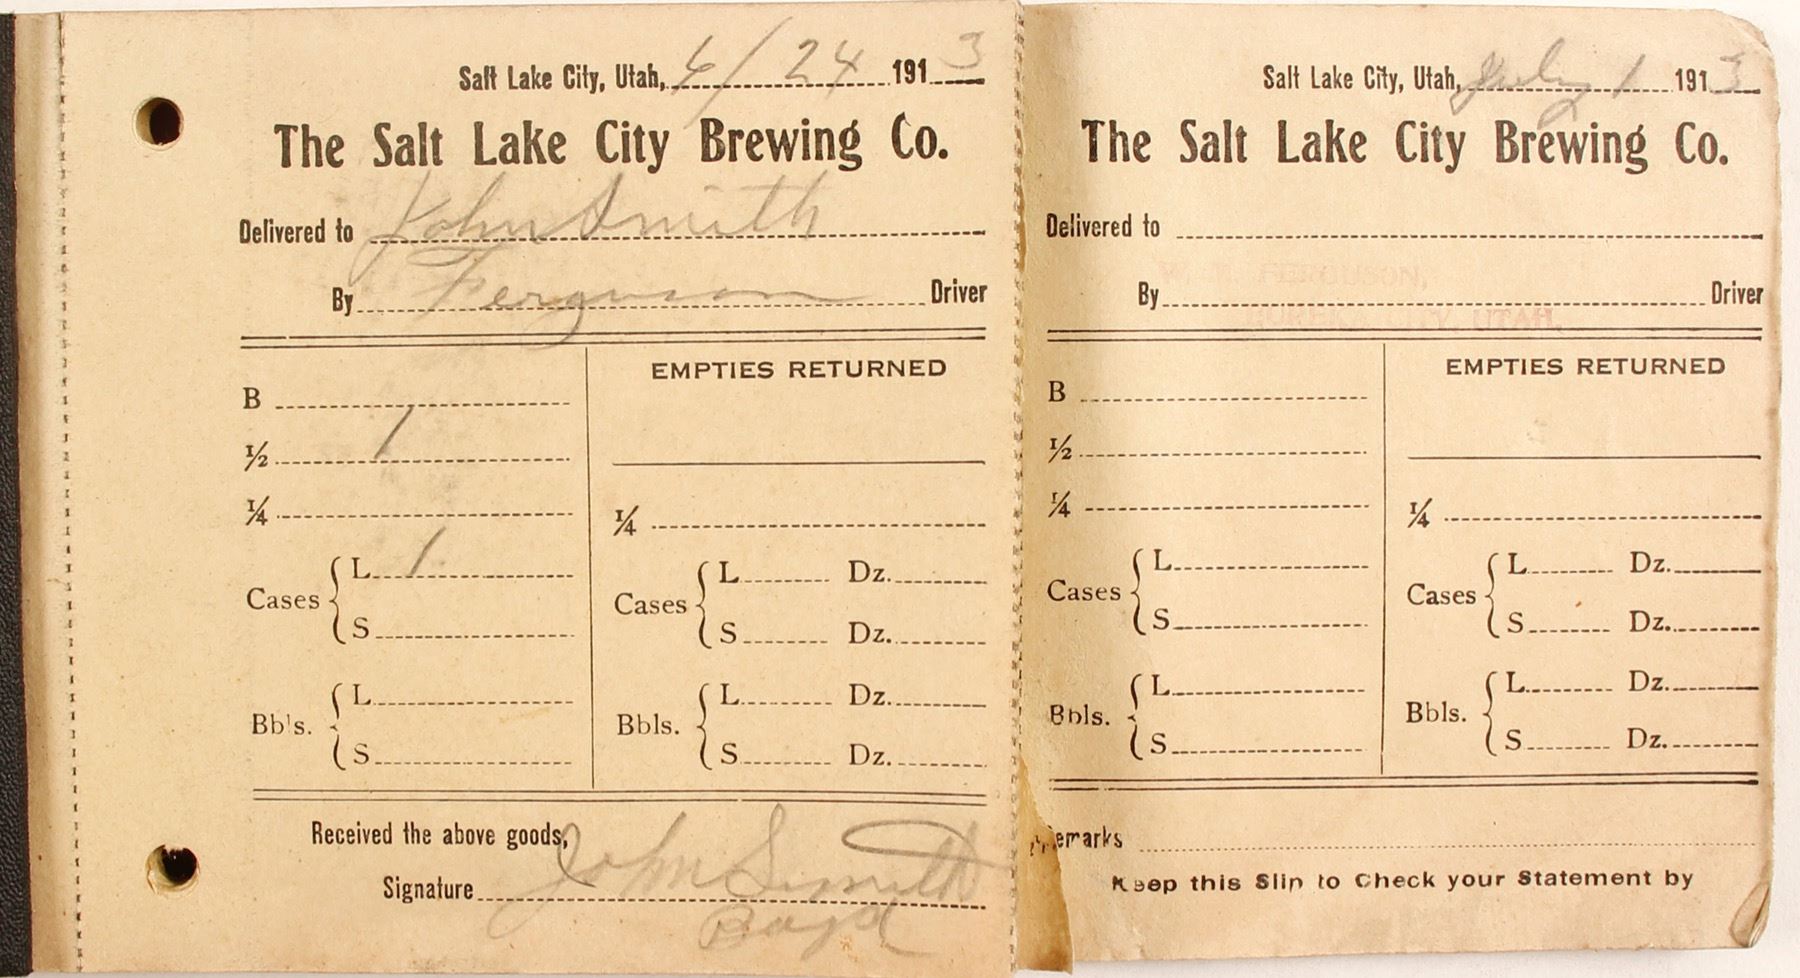 Salt Lake City, Utah, 6/24 1913
The Salt Lake City Brewing Co.
Delivered to John Smith
By Ferguson Driver
EMPTIES RETURNED
B
½ 1
¼
¼
Cases L 1
S
Cases L Dz.
S Dz.
Bbls. L
S
Bbls. L Dz.
S Dz.
Received the above goods,
Signature John Smith
Boyd
Salt Lake City, Utah, July 1 1913
The Salt Lake City Brewing Co.
Delivered to
FERGUSON,
By Driver
EUREKA CITY, UTAH.
EMPTIES RETURNED
B
½
¼
¼
Cases L
S
Cases L Dz.
S Dz.
Bbls. L
S
Bbls. L Dz.
S Dz.
Remarks
Keep this Slip to Check your Statement by